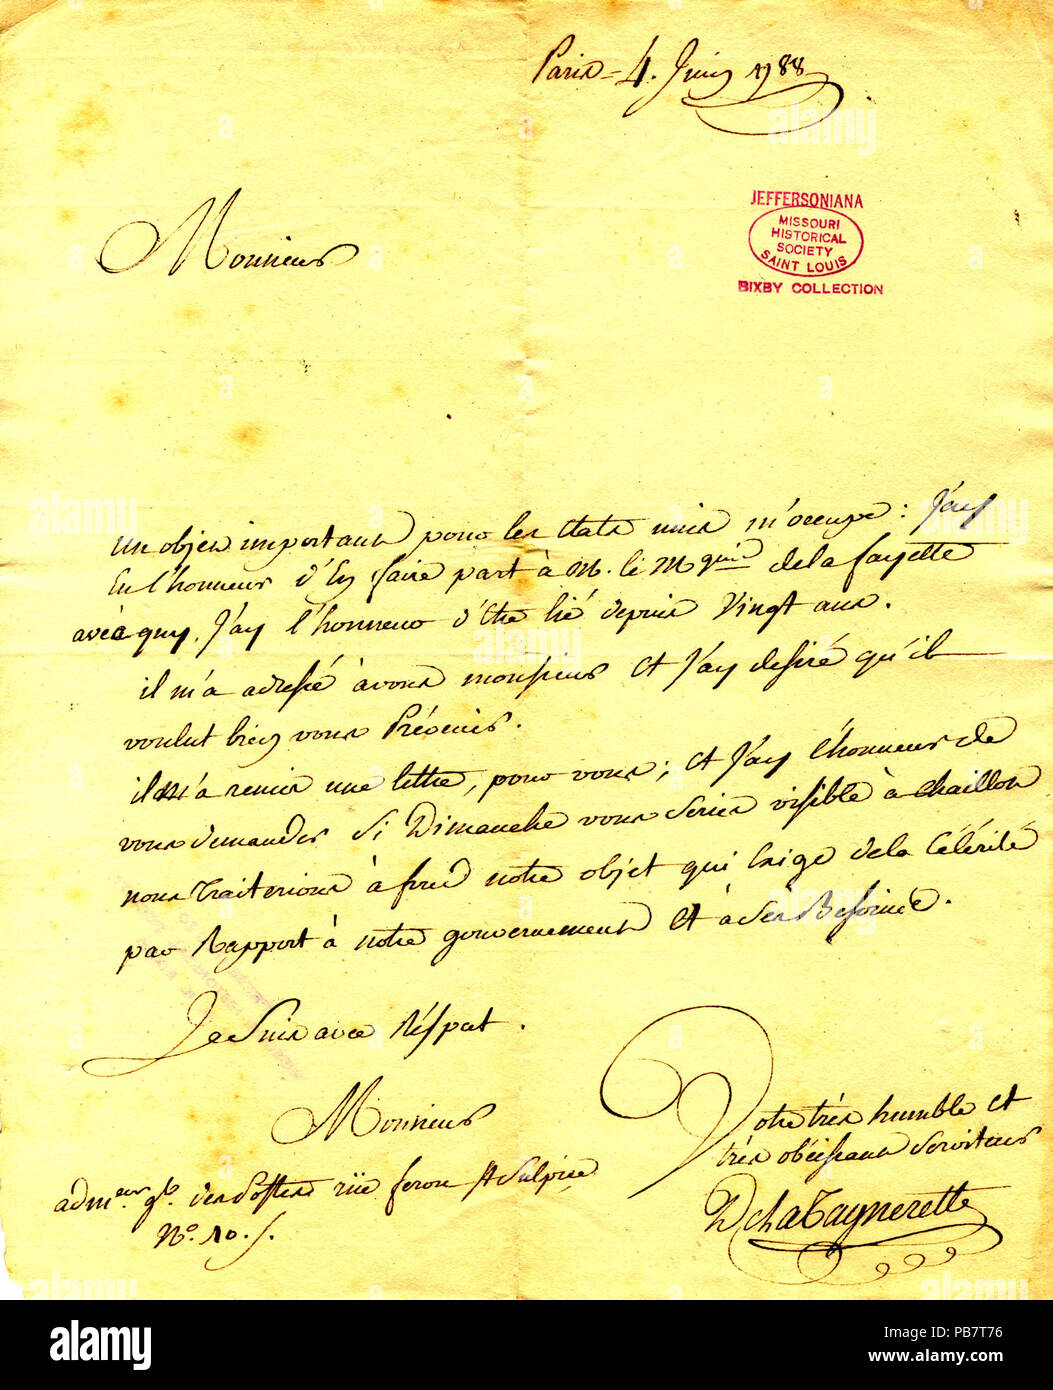 Paris = 4. Juin 1788
JEFFERSONIANA
MISSOURI
HISTORICAL
SOCIETY
SAINT LOUIS
BIXBY COLLECTION
Monsieur
un objet important pour les Etats unis m'occupe : J'ay
Eu l'honneur d'En faire part à M. le Mquis de la fayette
avec quy, J'ay l'honneur d'Etre lié depuis Vingt ans.
il m'a adressé à vous monsieur et J'ay desiré qu'il
voulut bien vous Prévenir.
il m'a remis une lettre, pour vous; et J'ay l'honneur de
vous demander Si Dimanche vous series visible à Chaillou
nous traiterions à fond notre objet qui Exige de la Célérité
par Rapport à notre gouvernement et à
Je suis avec Réspect.
Monsieur
Votre très humble et
très obéissant serviteur
D chatagnerette
admeur gl des Postes rüe ferou St Sulpice
No. 10.
alamy
Image ID: PB7T76
www.alamy.com